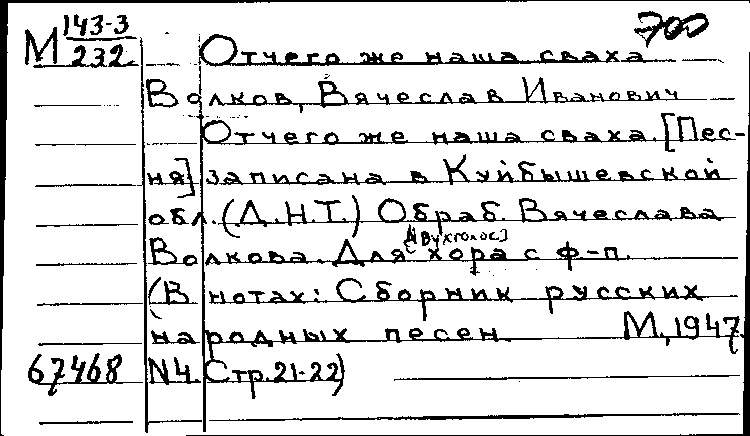 М 143-3/232 Отчего же наша сваха 700
Волков, Вячеслав Иванович
Отчего же наша сваха. [Пес-
ня] записана в Куйбышевской
обл. (Д.Н.Т.) Обраб. Вячеслава
Волкова. Для [двухголос.] хора с ф-п.
(В нотах: Сборник русских
народных песен. М., 1947.
67468 N4. Стр. 21-22)